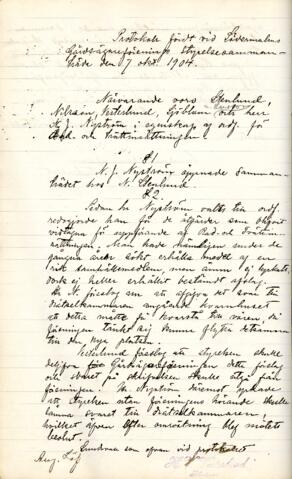 Protokoll fördt vid Södermalms
Gårdsägareförenings styrelsesamman-
träde den 7 okt. 1904.
Närvarande voro Stenlund,
Nilsson, Vesterlund, Sjöblom och herr
N. J. Nyström i egenskap av ordf. för
Bad- och Tvättinrättningen.
§1
N. J. Nyström öppnade samman-
trädet hos N. Stenlund.
§2
Sedan hr Nyström valts till ordf.
redogjorde han för de åtgärder som blifvit
vidtagna för uppförande af Bad- och Tvättin-
rättningen. Man hade nämligen under de
gångna åren sökt erhålla medel af en
rik samhällsmedlem, men ännu ej lyckats,
dock ej heller erhållit bestämdt afslag.
till
drätselkammaren angående kvarnhuset
att detta måtte få kvarstå till våren, då
föreningen tänkt sig kunna flytta detsamma
till den nya platsen.
Vesterlund föreslog att styrelsen skulle
delgifva Gårdsägareföreningen detta förslag
och svaret på skrifvelsen skulle utgå från
föreningen. Hr Nyström däremot tyckade
att styrelsen utan föreningens hörande skulle
lämna svaret till drätselkammaren,
hvilket äfven efter omröstning blef mötets
beslut.
Som ofvan vid protokollet
Aug.